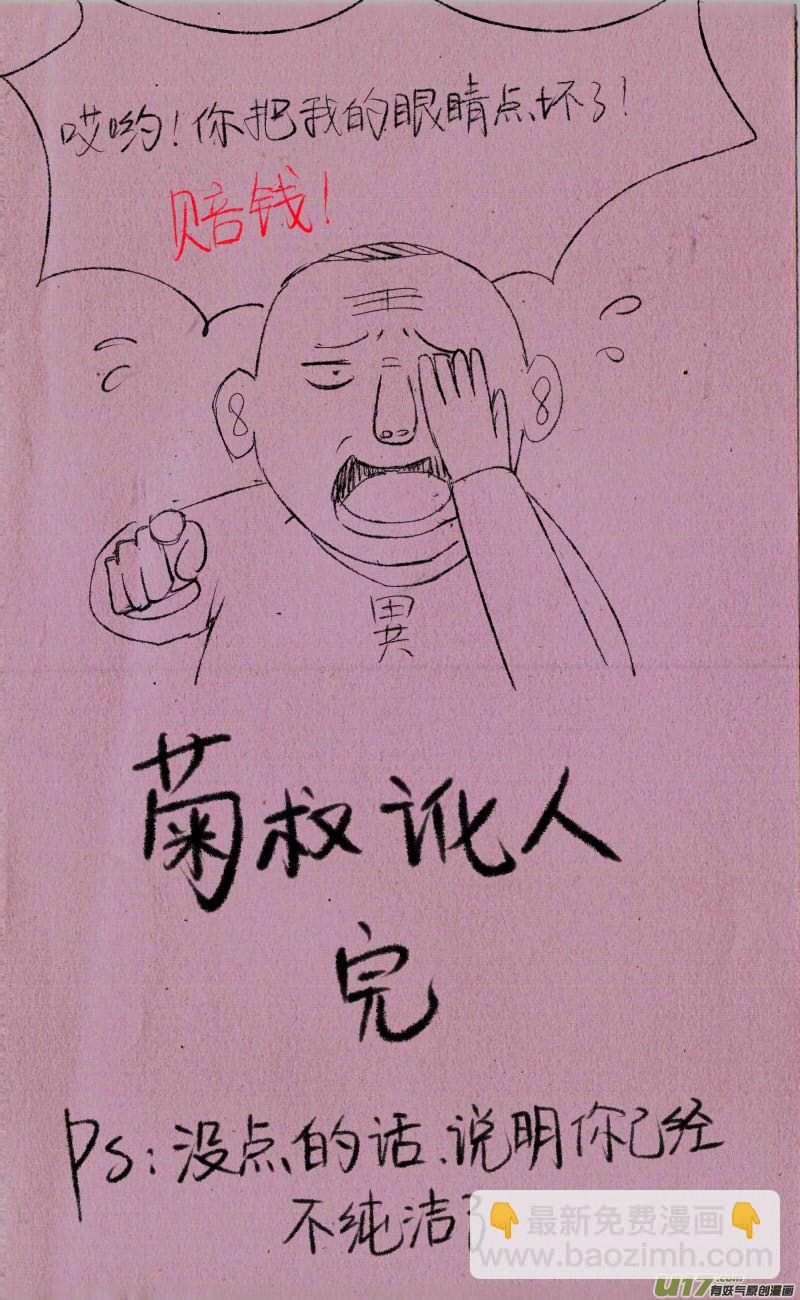 哎哟！你把我的眼睛点坏了！
赔钱！
異
菊叔讹人
完
Ps：没点的话、说明你已经
不纯洁了
👇最新免费漫画👇
www.baozimh.com
U17.com
有妖气原创漫画